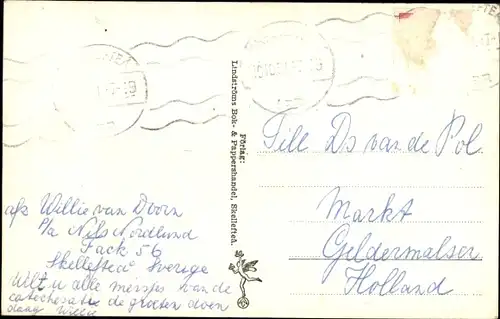 Förlag:
Lindströms Bok- & Pappershandel, Skellefteå.
Till Ds van de Pol
Markt
Geldermalsen
Holland
afz Willie van Doorn
p/a Nils Nordlund
Fack 56
Skellefteå, Sverige
Wilt u alle meisjes van de
catechesatie de groeten doen
daag Willie